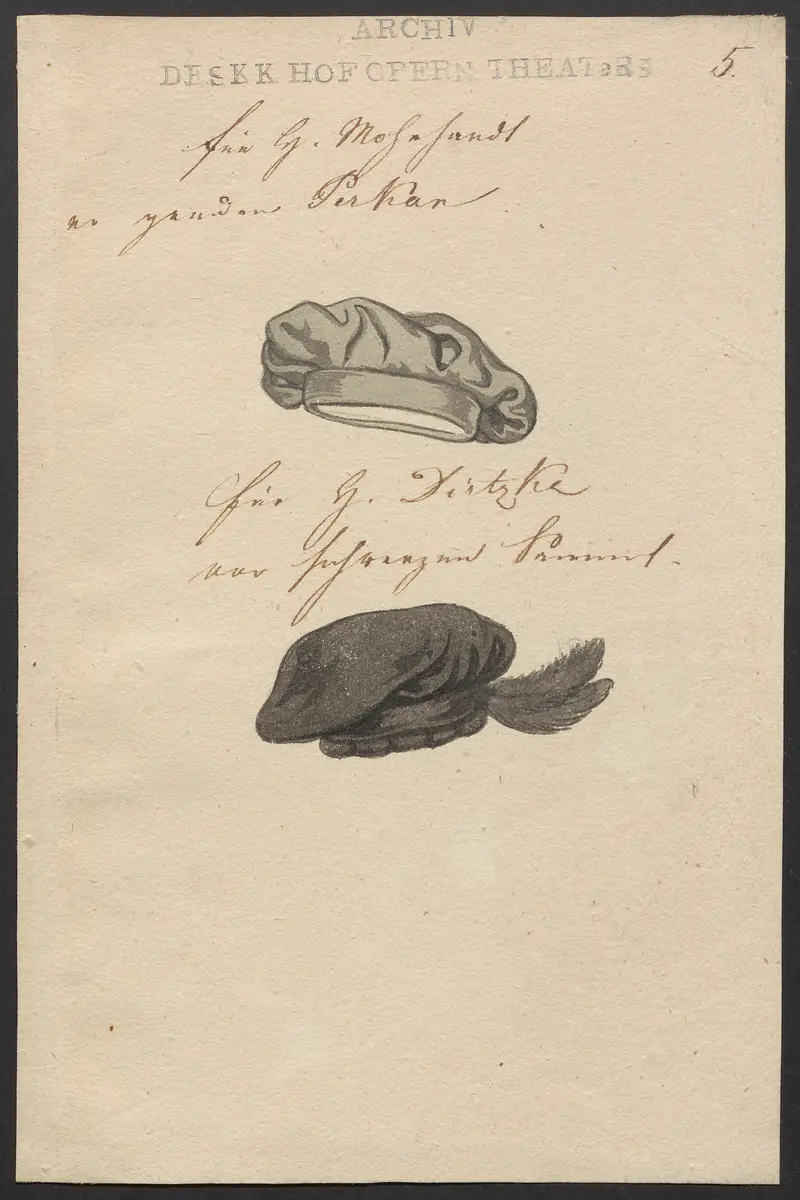 ARCHIV
DES K K HOF OPERN THEATERS
5.
für H. Mohrhardt
Perkan
für H. Dietzke
von schwarzen Sammt.